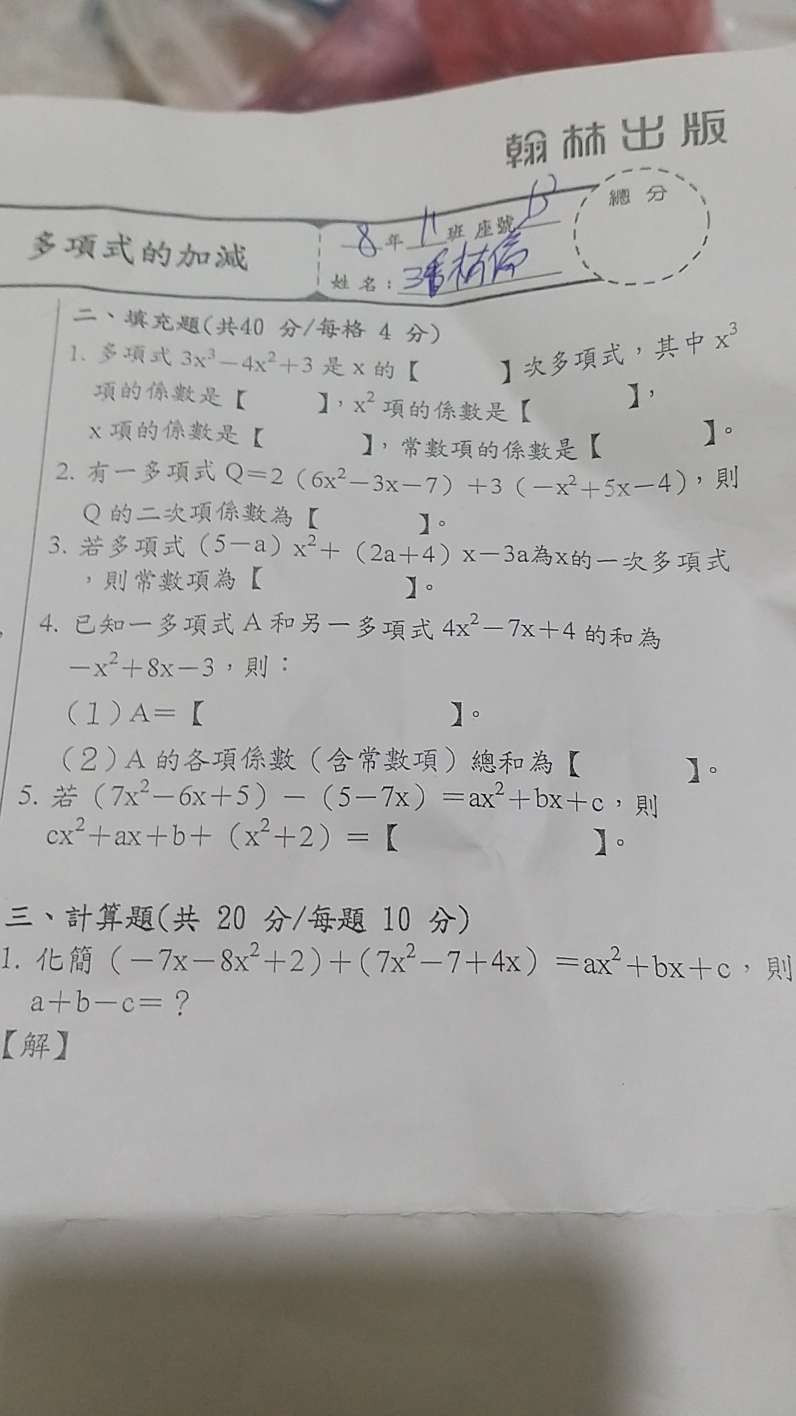 翰林出版
總分
多項式的加減
8年11班 座號13
姓名：潘
二、填充題(共40 分/每格 4 分)
1. 多項式 3x³－4x²＋3 是 x 的【　　　】次多項式，其中 x³
項的係數是【　　　】，x² 項的係數是【　　　】，
x 項的係數是【　　　】，常數項的係數是【　　　】。
2. 有一多項式 Q＝2（6x²－3x－7）＋3（－x²＋5x－4），則
Q 的二次項係數為【　　　】。
3. 若多項式（5－a）x²＋（2a＋4）x－3a為x的一次多項式
，則常數項為【　　　】。
4. 已知一多項式 A 和另一多項式 4x²－7x＋4 的和為
－x²＋8x－3，則：
（1）A＝【　　　】。
（2）A 的各項係數（含常數項）總和為【　　　】。
5. 若（7x²－6x＋5）－（5－7x）＝ax²＋bx＋c，則
cx²＋ax＋b＋（x²＋2）＝【　　　】。
三、計算題(共 20 分/每題 10 分)
1. 化簡（－7x－8x²＋2）＋（7x²－7＋4x）＝ax²＋bx＋c，則
a＋b－c＝？
【解】